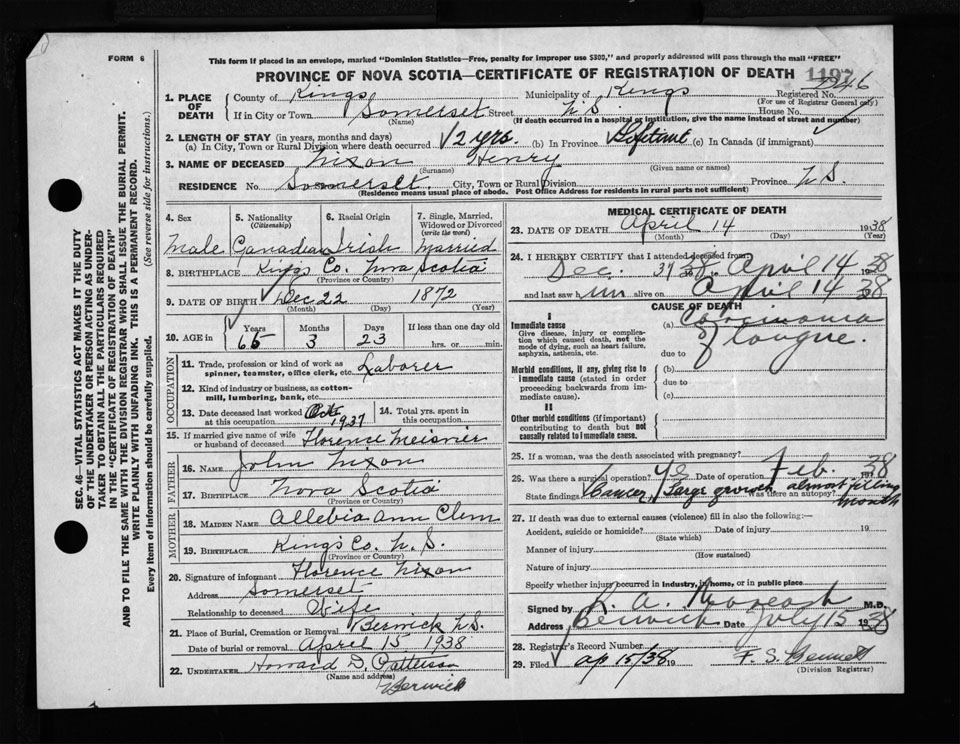 FORM 6
This form if placed in an envelope, marked "Dominion Statistics—Free, penalty for improper use $300," and properly addressed will pass through the mail "FREE"
PROVINCE OF NOVA SCOTIA—CERTIFICATE OF REGISTRATION OF DEATH
1. PLACE OF DEATH
County of Kings Municipality of Kings Registered No.
(For use of Registrar General only)
If in City or Town Somerset Street N.S. House No.
(Name) (If death occurred in a hospital or institution, give the name instead of street and number)
2. LENGTH OF STAY (in years, months and days)
(a) In City, Town or Rural Division where death occurred 2 yrs. (b) In Province Lifetime (c) In Canada (if immigrant)
3. NAME OF DECEASED Nixon Henry
(Surname) (Given name or names)
RESIDENCE No. Somerset City, Town or Rural Division Province N.S.
(Residence means usual place of abode. Post Office Address for residents in rural parts not sufficient)
4. Sex
Male
5. Nationality
(Citizenship)
Canadian
6. Racial Origin
Irish
7. Single, Married, Widowed or Divorced
(write the word)
Married
8. BIRTHPLACE Kings Co. Nova Scotia
(Province or Country)
9. DATE OF BIRTH Dec 22 1872
(Month) (Day) (Year)
10. AGE in
Years Months Days If less than one day old
65 3 23 hrs. or min.
OCCUPATION
11. Trade, profession or kind of work as spinner, teamster, office clerk, etc. Laborer
12. Kind of industry or business, as cotton-mill, lumbering, bank, etc.
13. Date deceased last worked at this occupation Oct 1937
14. Total yrs. spent in this occupation
15. If married give name of wife or husband of deceased Florence Meisnier
FATHER
16. NAME John Nixon
17. BIRTHPLACE Nova Scotia
(Province or Country)
MOTHER
18. MAIDEN NAME Ann Clem
19. BIRTHPLACE Kings Co. N.S.
(Province or Country)
20. Signature of informant Florence Nixon
Address Somerset
Relationship to deceased Wife
21. Place of Burial, Cremation or Removal Berwick N.S.
Date of burial or removal April 15 1938
22. UNDERTAKER Howard D. Patterson
(Name and address)
Berwick
MEDICAL CERTIFICATE OF DEATH
23. DATE OF DEATH April 14 1938
(Month) (Day) (Year)
24. I HEREBY CERTIFY that I attended deceased from:
Dec. 37 to April 14 1938
and last saw him alive on April 14 1938
CAUSE OF DEATH
I
Immediate cause
Give disease, injury or complication which caused death, not the mode of dying, such as heart failure, asphyxia, asthenia, etc.
(a) Carcinoma
due to of tongue.
Morbid conditions, if any, giving rise to immediate cause (stated in order proceeding backwards from immediate cause).
(b)
due to
(c)
II
Other morbid conditions (if important) contributing to death but not causally related to immediate cause.
25. If a woman, was the death associated with pregnancy?
26. Was there a surgical operation? yes Date of operation Feb. 1938
State findings Cancer Large growth almost filling mouth Was there an autopsy?
27. If death was due to external causes (violence) fill in also the following:—
Accident, suicide or homicide? Date of injury 19
(State which)
Manner of injury
(How sustained)
Nature of injury
Specify whether injury occurred in industry, in home, or in public place
Signed by M.D.
Address Berwick Date July 15 1938
28. Registrar's Record Number
29. Filed ap 15/38 19 F. S. Bennett
(Division Registrar)
SEC. 46—VITAL STATISTICS ACT MAKES IT THE DUTY OF THE UNDERTAKER OR PERSON ACTING AS UNDERTAKER TO OBTAIN ALL THE PARTICULARS REQUIRED IN THE "CERTIFICATE OF REGISTRATION OF DEATH" AND TO FILE THE SAME WITH THE DIVISION REGISTRAR WHO SHALL ISSUE THE BURIAL PERMIT.
WRITE PLAINLY WITH UNFADING INK. THIS IS A PERMANENT RECORD.
Every item of information should be carefully supplied. (See reverse side for instructions.)